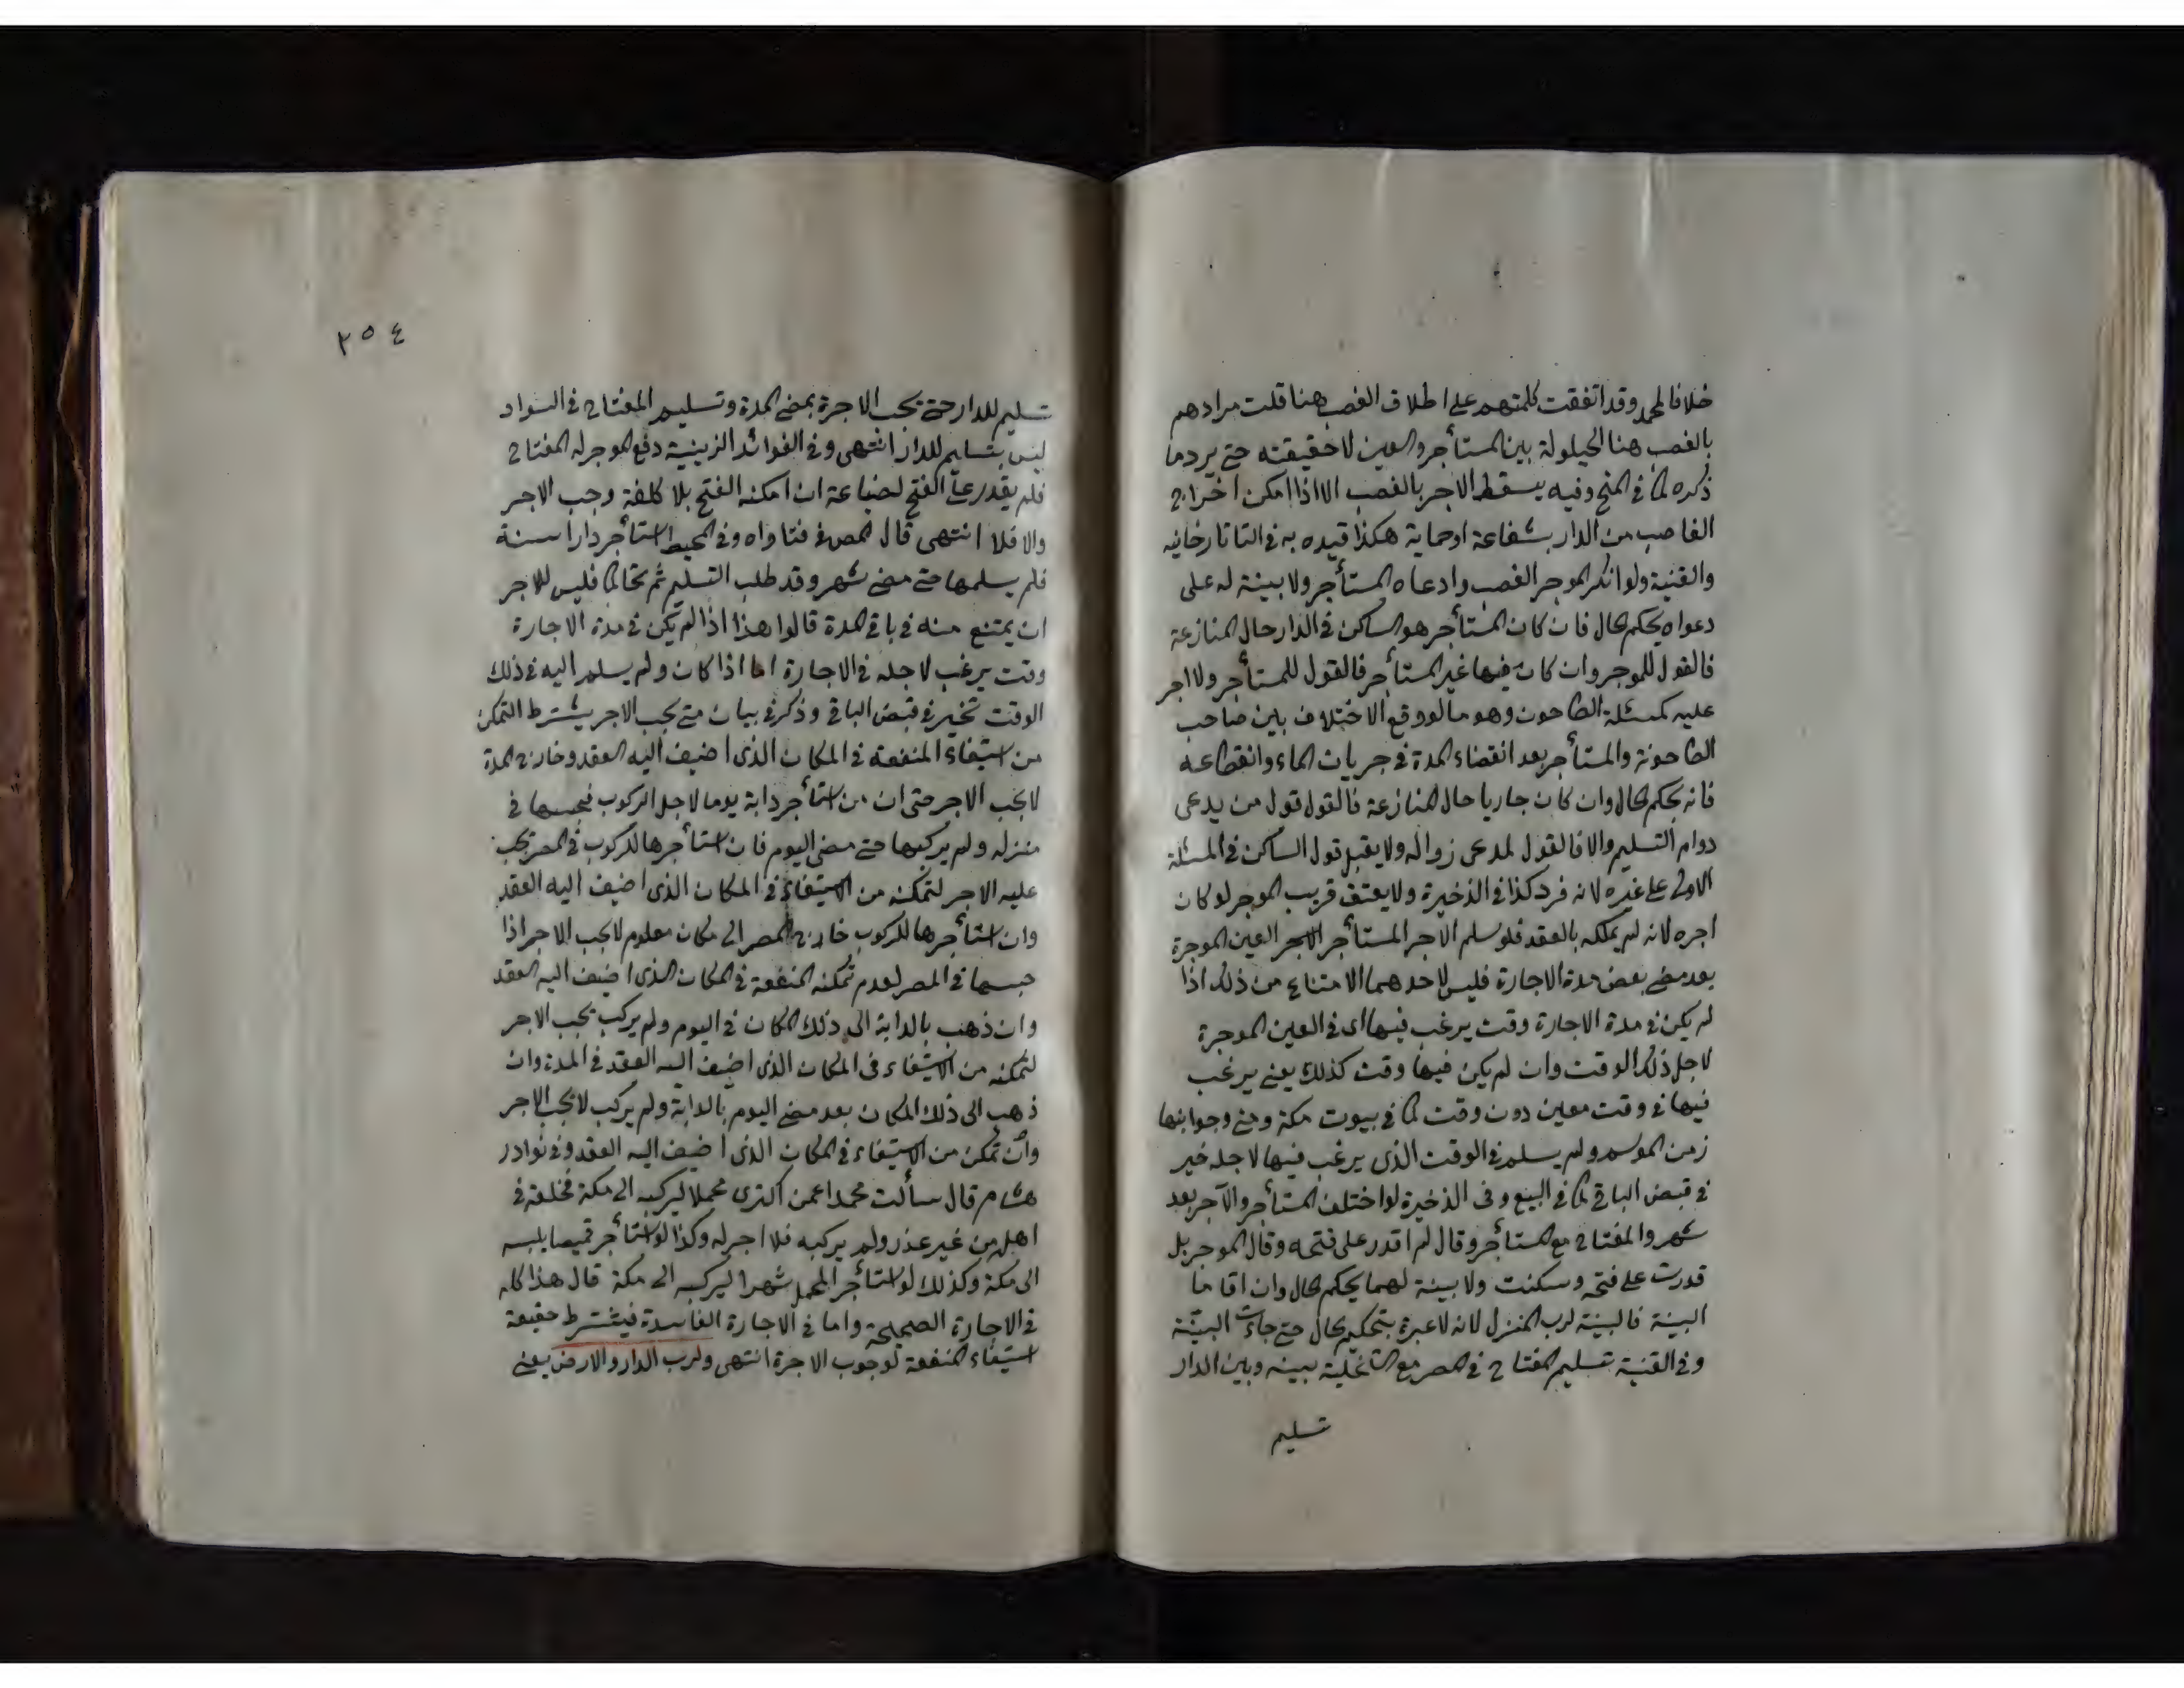 خلافا لمحمد وقد اتفقت كلمتهم على اطلاق الغصب هنا قلت مرادهم
بالغصب هنا الحيلولة بين المستأجر والعين لا حقيقته حتى يرد ما
ذكره كما في المنح وفيه يسقط الاجر بالغصب الا اذا امكن اخراج
الغاصب من الدار بشفاعة او حماية هكذا قيده به في التاتارخانيه
والقنية ولو انكر الموجر الغصب وادعاه المستأجر ولا بينة له على
دعواه يحكم الحال فان كان المستأجر هو الساكن في الدار حال المنازعة
فالقول للموجر وان كان فيها غير المستأجر فالقول للمستأجر ولا اجر
عليه كمسئلة الطاحون وهو ما لو وقع الاختلاف بين صاحب
الطاحونة والمستأجر بعد انقضاء المدة في جريان الماء وانقطاعه
فانه يحكم الحال وان كان جاريا حال المنازعة فالقول قول من يدعى
دوام التسليم والا فالقول لمدعى زواله ولا يقبل قول الساكن في المسئلة
الاولى على غيره لانه فرد كذا في الذخيرة ولا يعتق قريب الموجر لو كان
اجره لانه لم يملكه بالعقد فلو سلم الاجر المستأجر العين الموجرة
بعد مضى بعض مدة الاجارة فليس لاحدهما الامتناع من ذلك اذا
لم يكن في مدة الاجارة وقت يرغب فيها اى في العين الموجرة
لاجل ذلك الوقت وان لم يكن فيها وقت كذلك يعنى يرغب
فيها في وقت معين دون وقت كما في بيوت مكة ومنى وحوانيتها
زمن الموسم ولم يسلم في الوقت الذى يرغب فيها لاجله خير
في قبض الباقي كما في البيع وفى الذخيرة لو اختلف المستأجر والآجر بعد
شهر والمفتاح مع المستأجر وقال لم اقدر على فتحه وقال الموجر بل
قدرت على فتحه وسكنت ولا بينة لهما يحكم الحال وان اقاما
البينة فالبينة لرب المنزل لانه لا عبرة بتحكيم الحال حتى جاءت البينة
وفي القنية تسليم المفتاح في المصر مع التخلية بينه وبين الدار
تسليم
٢٥٤
تسليم للدار حتى يجب الاجرة بمضى المدة وتسليم المفتاح في السواد
ليس بتسليم للدار انتهى وفي الفوائد الزينية دفع الموجر له المفتاح
فلم يقدر على الفتح لضياعه ان امكنه الفتح بلا كلفة وجب الاجر
والا فلا انتهى قال المص في فتاواه وفي المحيط استأجر دارا سنة
فلم يسلمها حتى مضى شهر وقد طلب التسليم ثم تحاكما فليس للاجر
ان يمتنع منه في باقى المدة قالوا هذا اذا لم يكن في مدة الاجارة
وقت يرغب لاجله في الاجارة اما اذا كان ولم يسلم اليه في ذلك
الوقت تخير في قبض الباقي وذكر في بيان متى يجب الاجر يشترط التمكن
من استيفاء المنفعة في المكان الذى اضيف اليه العقد وخارج المدة
لا يجب الاجر حتى ان من استأجر دابة يوما لاجل الركوب فحبسها في
منزله ولم يركبها حتى مضى اليوم فان استأجرها للركوب في المصر يجب
عليه الاجر لتمكنه من الاستيفاء في المكان الذى اضيف اليه العقد
وان استأجرها للركوب خارج المصر الى مكان معلوم لا يجب الاجر اذا
حبسها في المصر لعدم تمكنه المنفعة في المكان الذى اضيف اليه العقد
وان ذهب بالدابة الى ذلك المكان في اليوم ولم يركب يجب الاجر
لتمكنه من الاستيفاء فى المكان الذى اضيف اليه العقد في المدة وان
ذهب الى ذلك المكان بعد مضى اليوم بالدابة ولم يركب لا يجب الاجر
وان تمكن من الاستيفاء في المكان الذى اضيف اليه العقد وفي نوادر
هشام قال سألت محمدا عمن اكترى محملا ليركبه الى مكة فخلفه في
اهله من غير عذر ولم يركبه فلا اجر له وكذا لو استأجر قميصا يلبسه
الى مكة وكذلك لو استأجر المحمل شهرا ليركبه الى مكة قال هذا كله
في الاجارة الصحيحة واما في الاجارة الفاسدة فيشترط حقيقة
استيفاء المنفعة لوجوب الاجرة انتهى ولرب الدار والارض يعنى